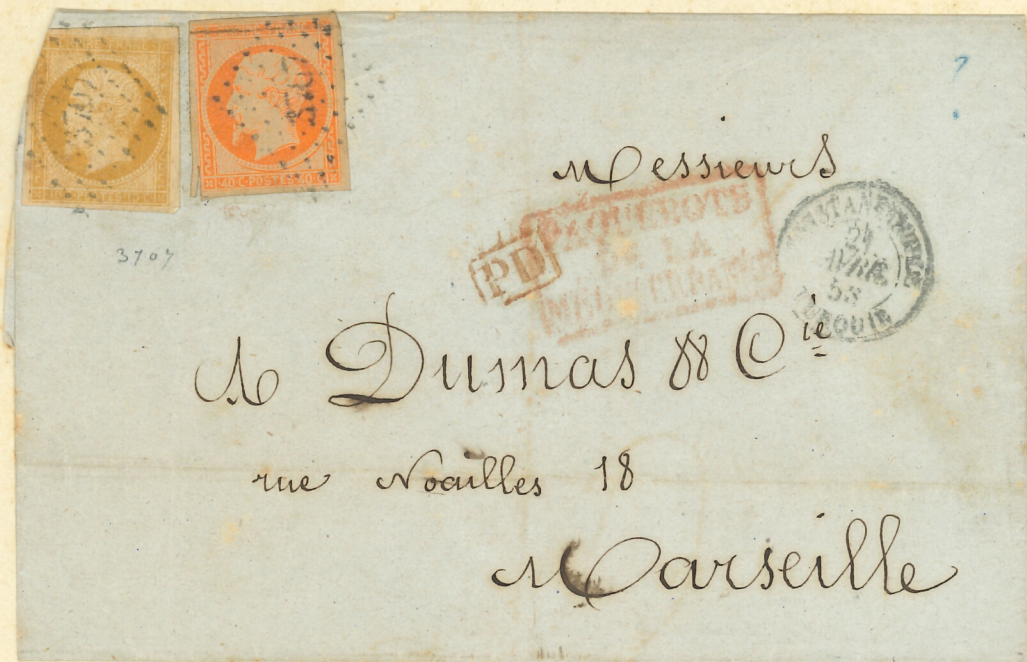 40 C·POSTES·40 C
3707
Messieurs
PAQUEBOTS
DE LA
MÉDITERRANÉE
PD
CONSTANTINOPLE
24
AVRIL
58
TURQUIE
A Dumas & Cie
rue Noailles 18
Marseille